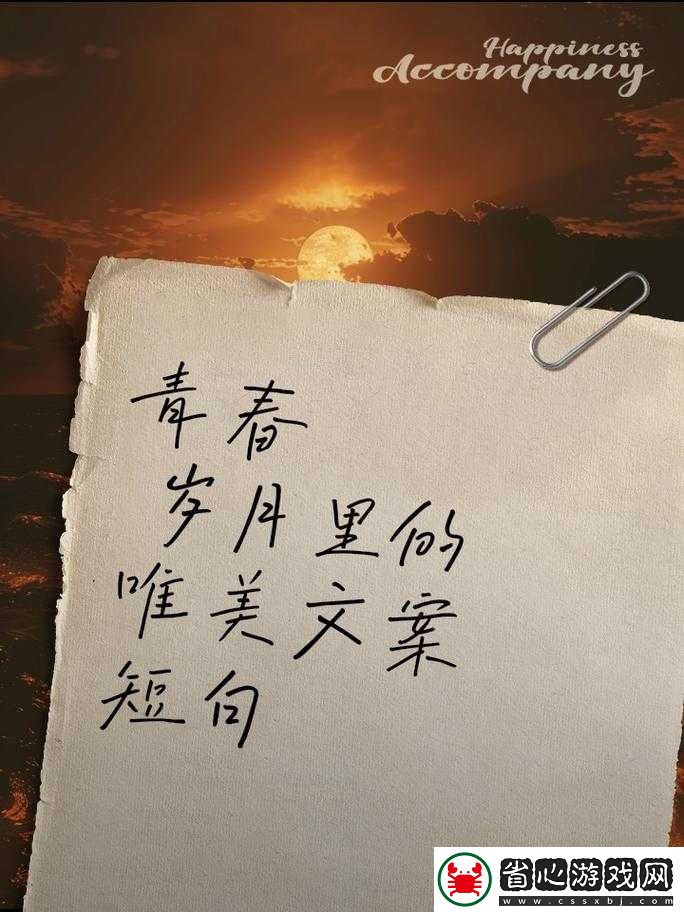 Happiness
Accompany
青春
岁月里的
唯美文案
短句
省心游戏网
www.cssxbj.com